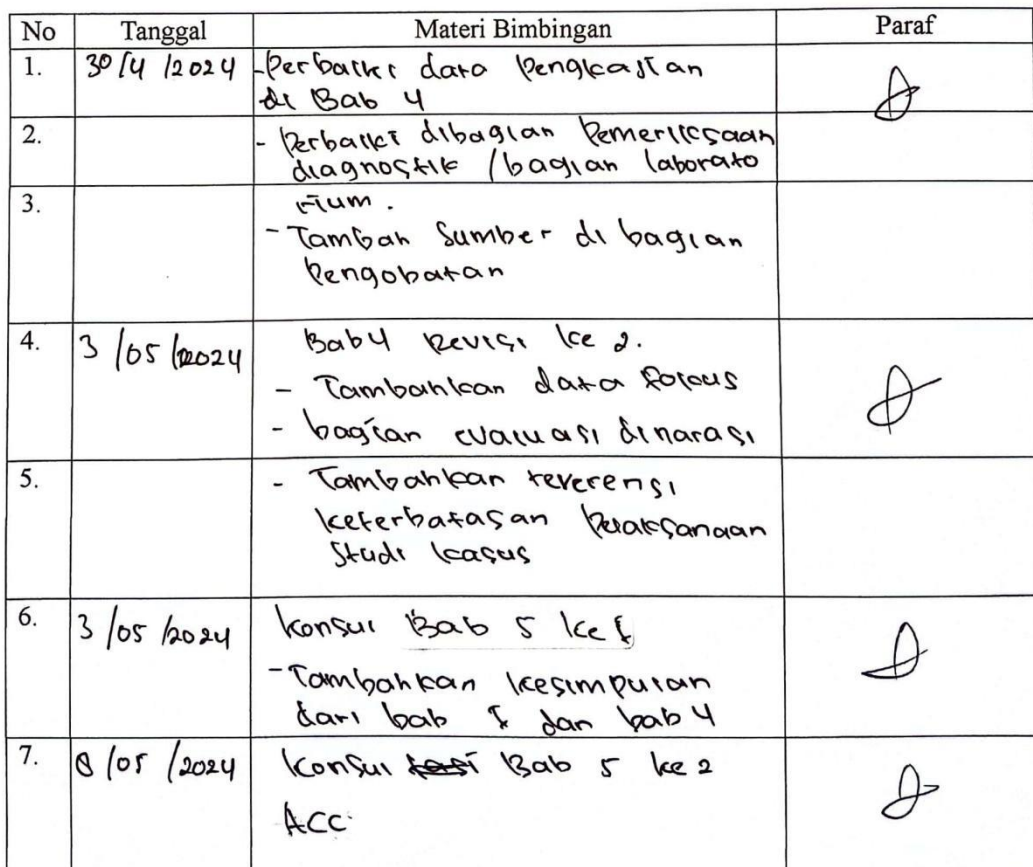 No Tanggal Materi Bimbingan Paraf
1. 30/4/2024 - Perbaiki data Pengkajian
di Bab 4
2. - Perbaiki dibagian Pemeriksaan
diagnostik / bagian laborato
3. rium.
- Tambah Sumber di bagian
Pengobatan
4. 3/05/2024 Bab 4 Revisi ke 2.
- Tambahkan data focus
- bagian evaluasi dinarasi
5. - Tambahkan referensi
keterbatasan Pelaksanaan
Studi kasus
6. 3/05/2024 Konsul Bab 5 ke 1
- Tambahkan kesimpulan
dari bab 1 dan bab 4
7. 8/05/2024 Konsul Bab 5 ke 2
ACC